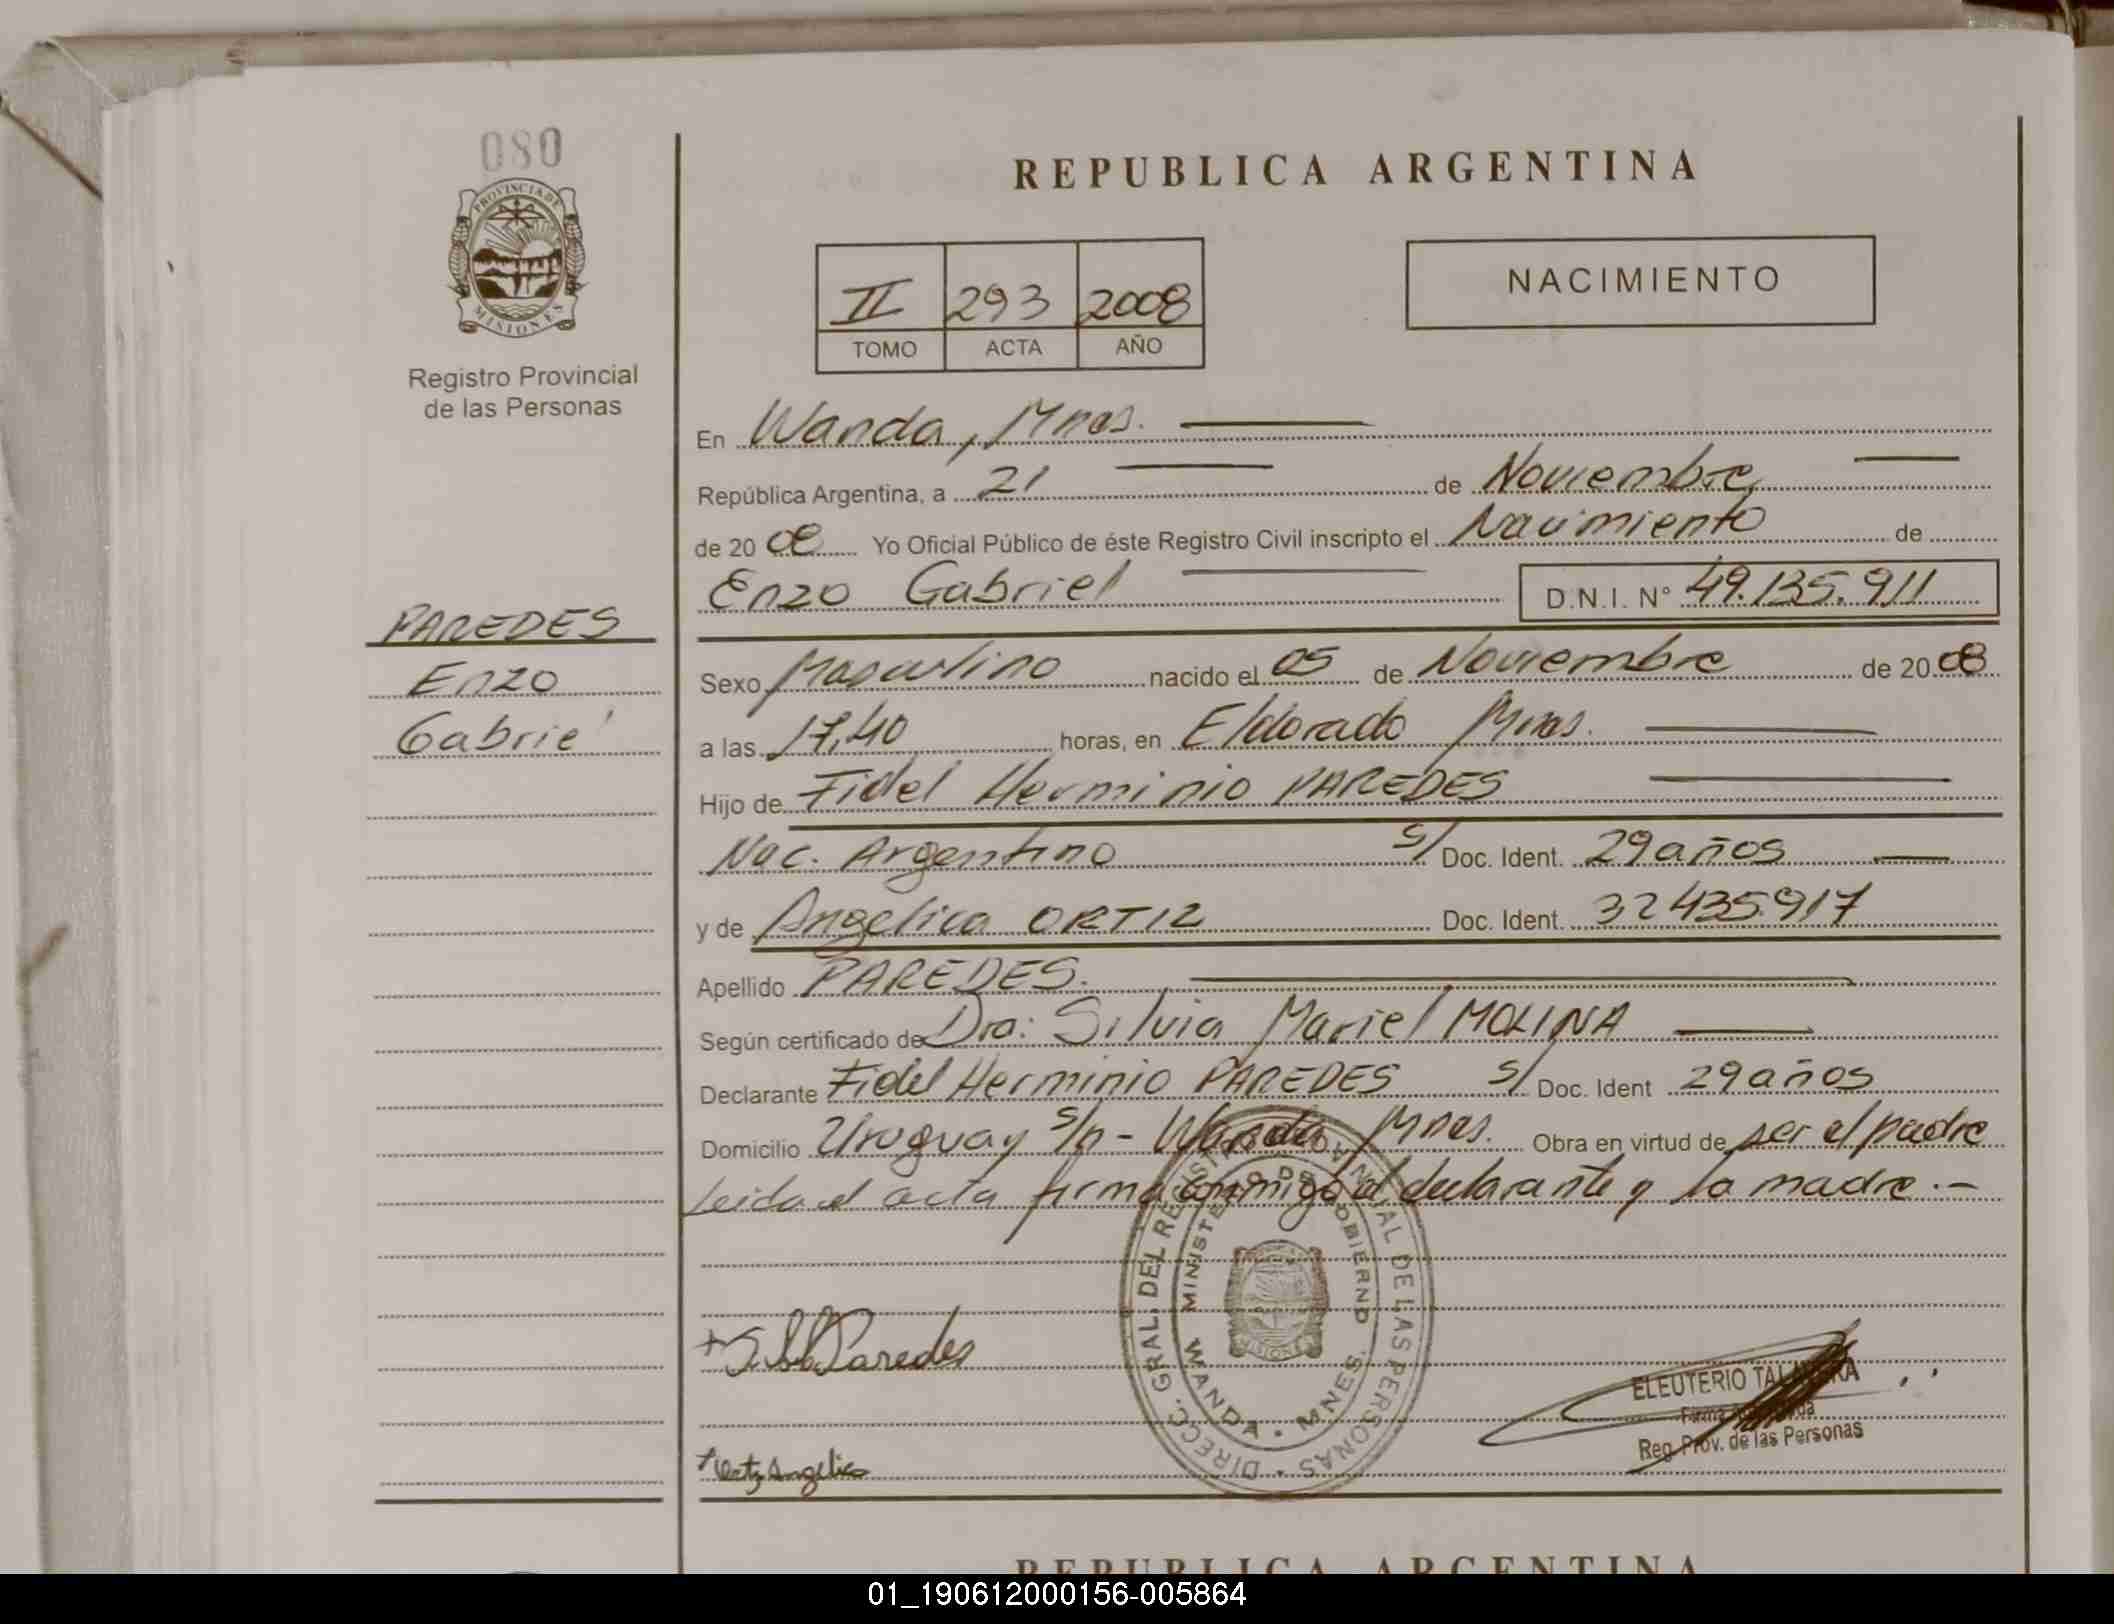 080
PROVINCIA DE
MISIONES
Registro Provincial
de las Personas
PAREDES
Enzo
Gabriel
REPUBLICA ARGENTINA
II 293 2008
TOMO ACTA AÑO
NACIMIENTO
En Wanda, Mnes.
República Argentina, a 21 de Noviembre
de 20 08 Yo Oficial Público de éste Registro Civil inscripto el Nacimiento de
Enzo Gabriel D.N.I. N° 49.135.911
Sexo Masculino nacido el 05 de Noviembre de 20 08
a las 17,40 horas, en Eldorado Mnes.
Hijo de Fidel Herminio PAREDES
Nac. Argentino S/ Doc. Ident. 29 años
y de Angelica ORTIZ Doc. Ident. 32435917
Apellido PAREDES.
Según certificado de Dra: Silvia Mariel MOLINA
Declarante Fidel Herminio PAREDES S/ Doc. Ident 29 años
Domicilio Uruguay s/n - Wanda Mnes. Obra en virtud de ser el padre
Leida el acta firma conmigo el declarante y la madre.-
DIRECC. GRAL. DEL REGISTRO PROVINCIAL DE LAS PERSONAS
MINISTERIO DE GOBIERNO
WANDA - MNES.
MISIONES
Paredes
Ortiz Angelica
ELEUTERIO TALAVERA
Firma Autorizada
Reg. Prov. de las Personas
REPUBLICA ARGENTINA
01_190612000156-005864